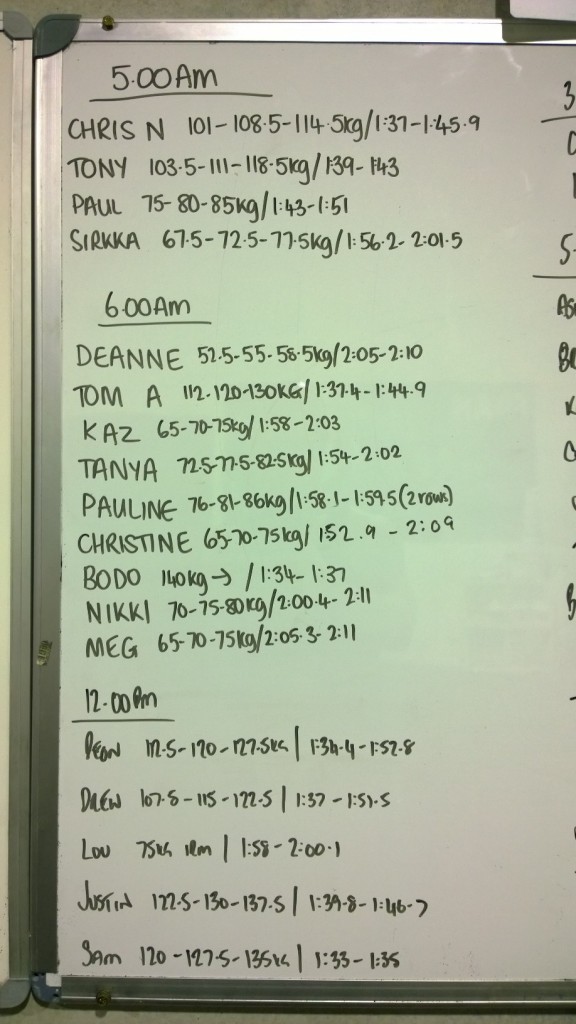 5.00Am
CHRIS N 101-108.5-114.5kg/1:37-1:45.9
TONY 103.5-111-118.5kg/1:39-1:43
PAUL 75-80-85kg/1:43-1:51
SIRKKA 67.5-72.5-77.5kg/1:56.2-2:01.5
6.00Am
DEANNE 52.5-55-58.5kg/2:05-2:10
TOM A 112-120-130KG/1:37.4-1:44.9
KAZ 65-70-75kg/1:58-2:03
TANYA 72.5-77.5-82.5kg/1:54-2:02
PAULINE 76-81-86kg/1:58.1-1:59.5(2rows)
CHRISTINE 65-70-75kg/ 1:52.9 - 2:09
BODO 140kg→ /1:34-1:37
NIKKI 70-75-80kg/2:00.4-2:11
MEG 65-70-75kg/2:05.3-2:11
12.00Pm
112.5-120-127.5kg | 1:34.4-1:52.8
DREW 107.5-115-122.5 | 1:37-1:51.5
LOU 75kg 1Rm | 1:58-2:00.1
JUSTIN 122.5-130-137.5 | 1:39.8-1:46.7
SAM 120-127.5-135kg | 1:33-1:35
3
5-